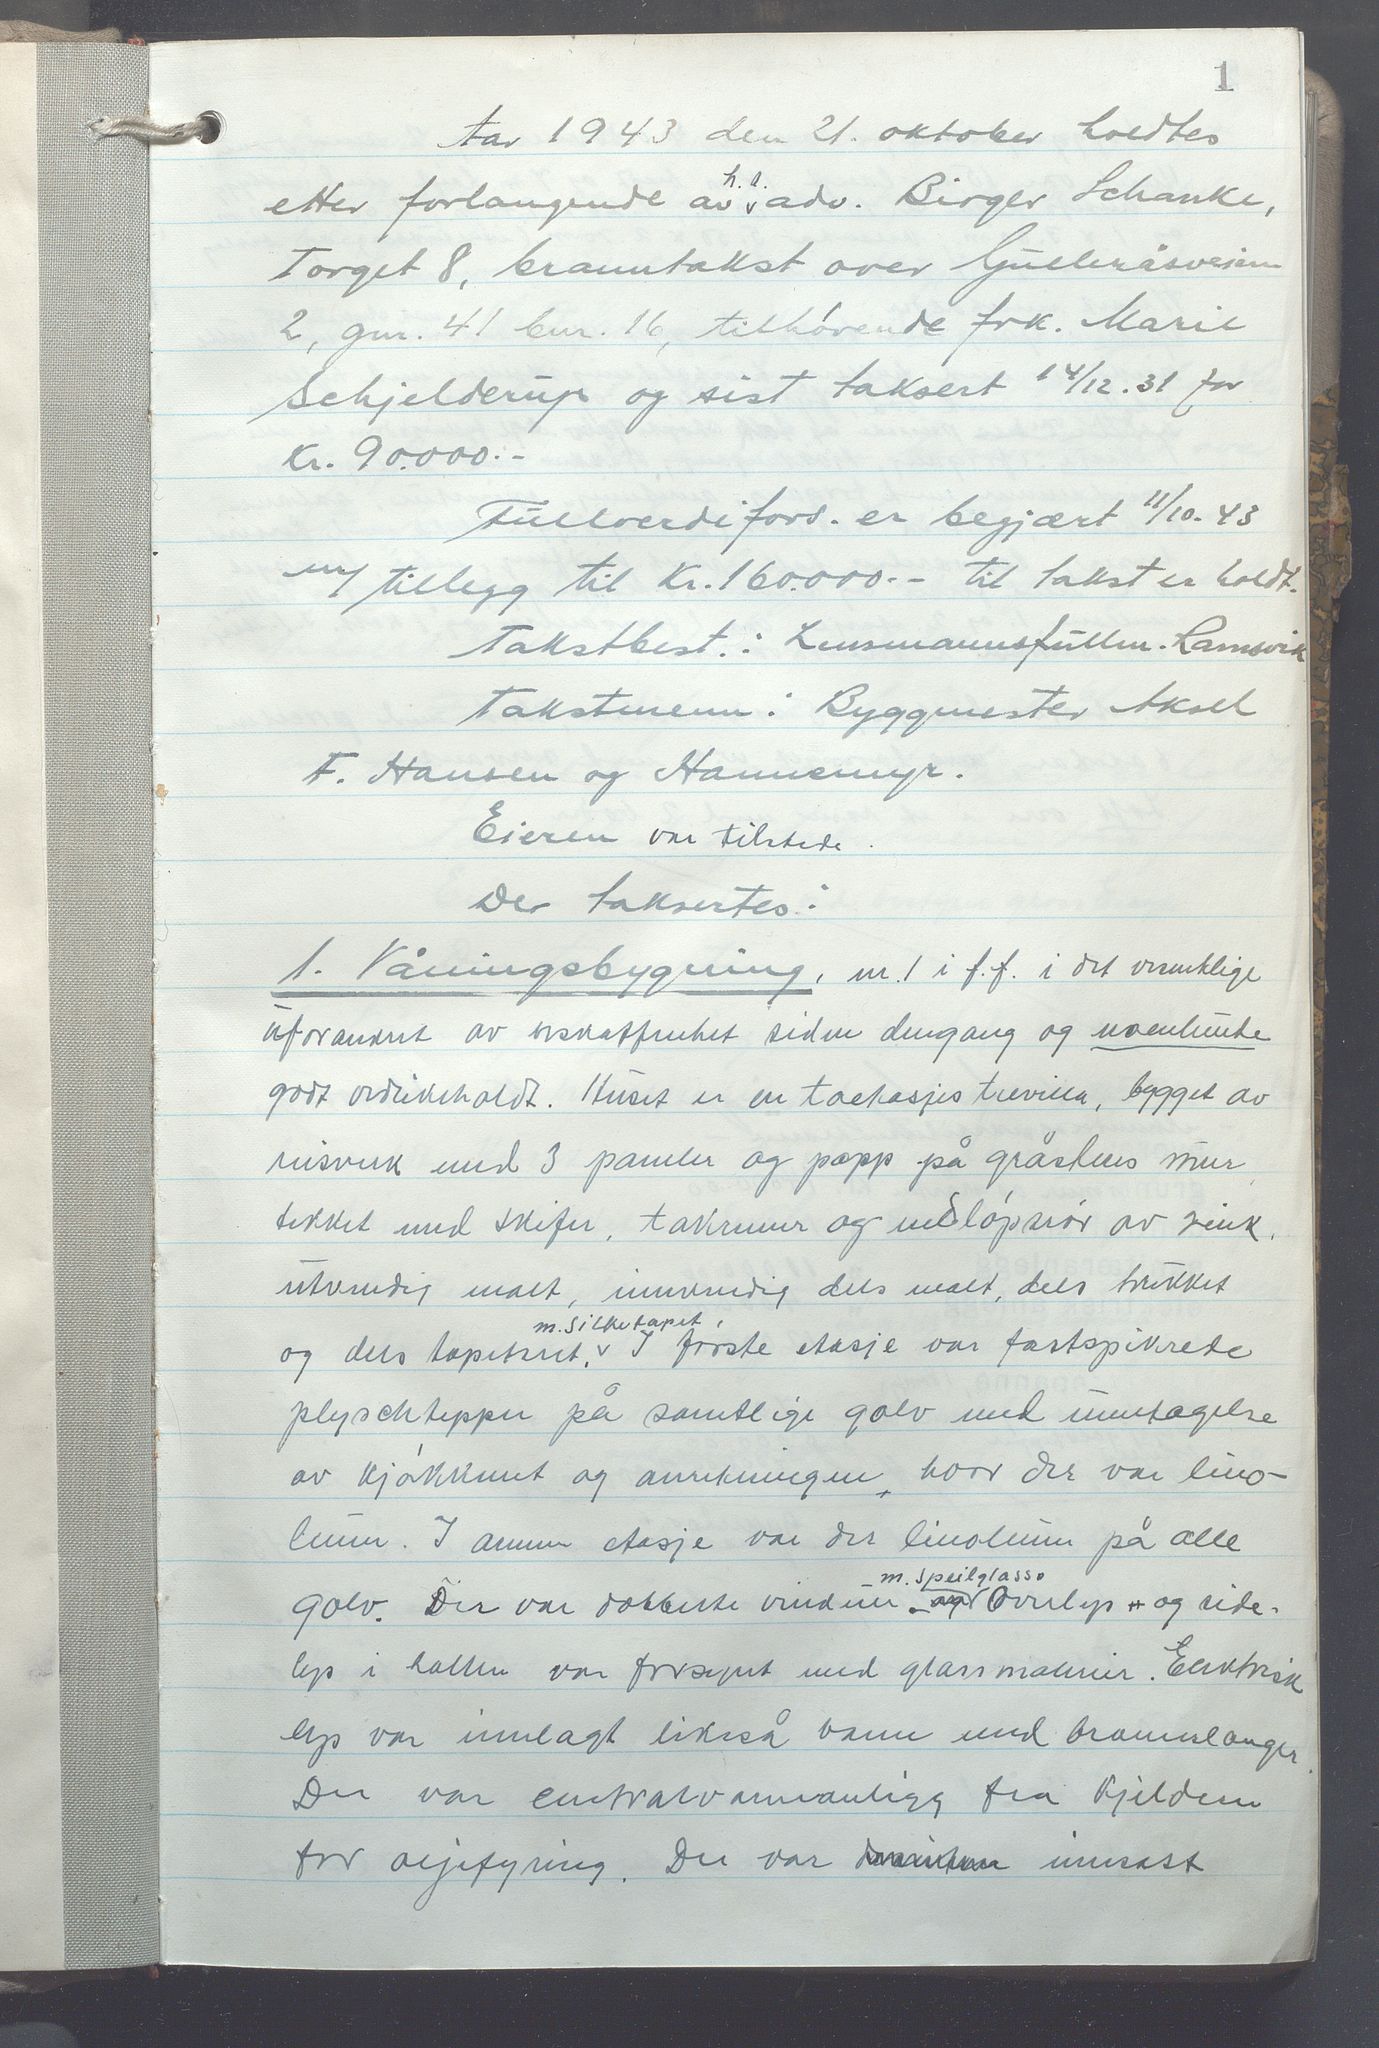 1
Aar 1943 den 21. oktober holdtes
etter forlangende av h.r. adv. Birger Schanke,
Torget 8, branntakst over Gulleråsveien
2, gnr. 41 bnr. 16, tilhørende frk. Marie
Schjelderup og sist taksert 14/12.31 for
Kr. 90.000.-
Fullverdifors. er begjært 11/10.43
m/ tillegg til Kr. 160.000.- til takst er holdt.
Takstbest.: Lensmannsfullm. Lamsvik
Takstmenn: Byggmester Aksel
F. Hansen og Hannemyr.
Eieren var tilstede.
Der taksertes:
1. Våningsbygning, nr. 1 i f.f. i det vesentlige
uforandret av beskaffenhet siden dengang og noenlunde
godt vedlikeholdt. Huset er en toetasjes trevilla, bygget av
reisverk med 3 paneler og papp på gråstens mur,
tekket med skifer, takrenner og nedløpsrør av sink,
utvendig malt, innvendig dels malt, dels trukket
og dels tapetsert m. silketapet. I første etasje var fastspikrede
plyschtepper på samtlige golv med unntagelse
av kjøkkenet og anretningen, hvor der var lino-
leum. I annen etasje var der linoleum på alle
golv. Der var dobbelte vinduer m. speilglass. Overlys og side-
lys i hallen var forsynt med glassmalerier. Elektrisk
lys var innlagt likeså vann med brannslanger.
Der var centralvarmeanlegg fra kjelderen
for oljefyring. Der var innsatt